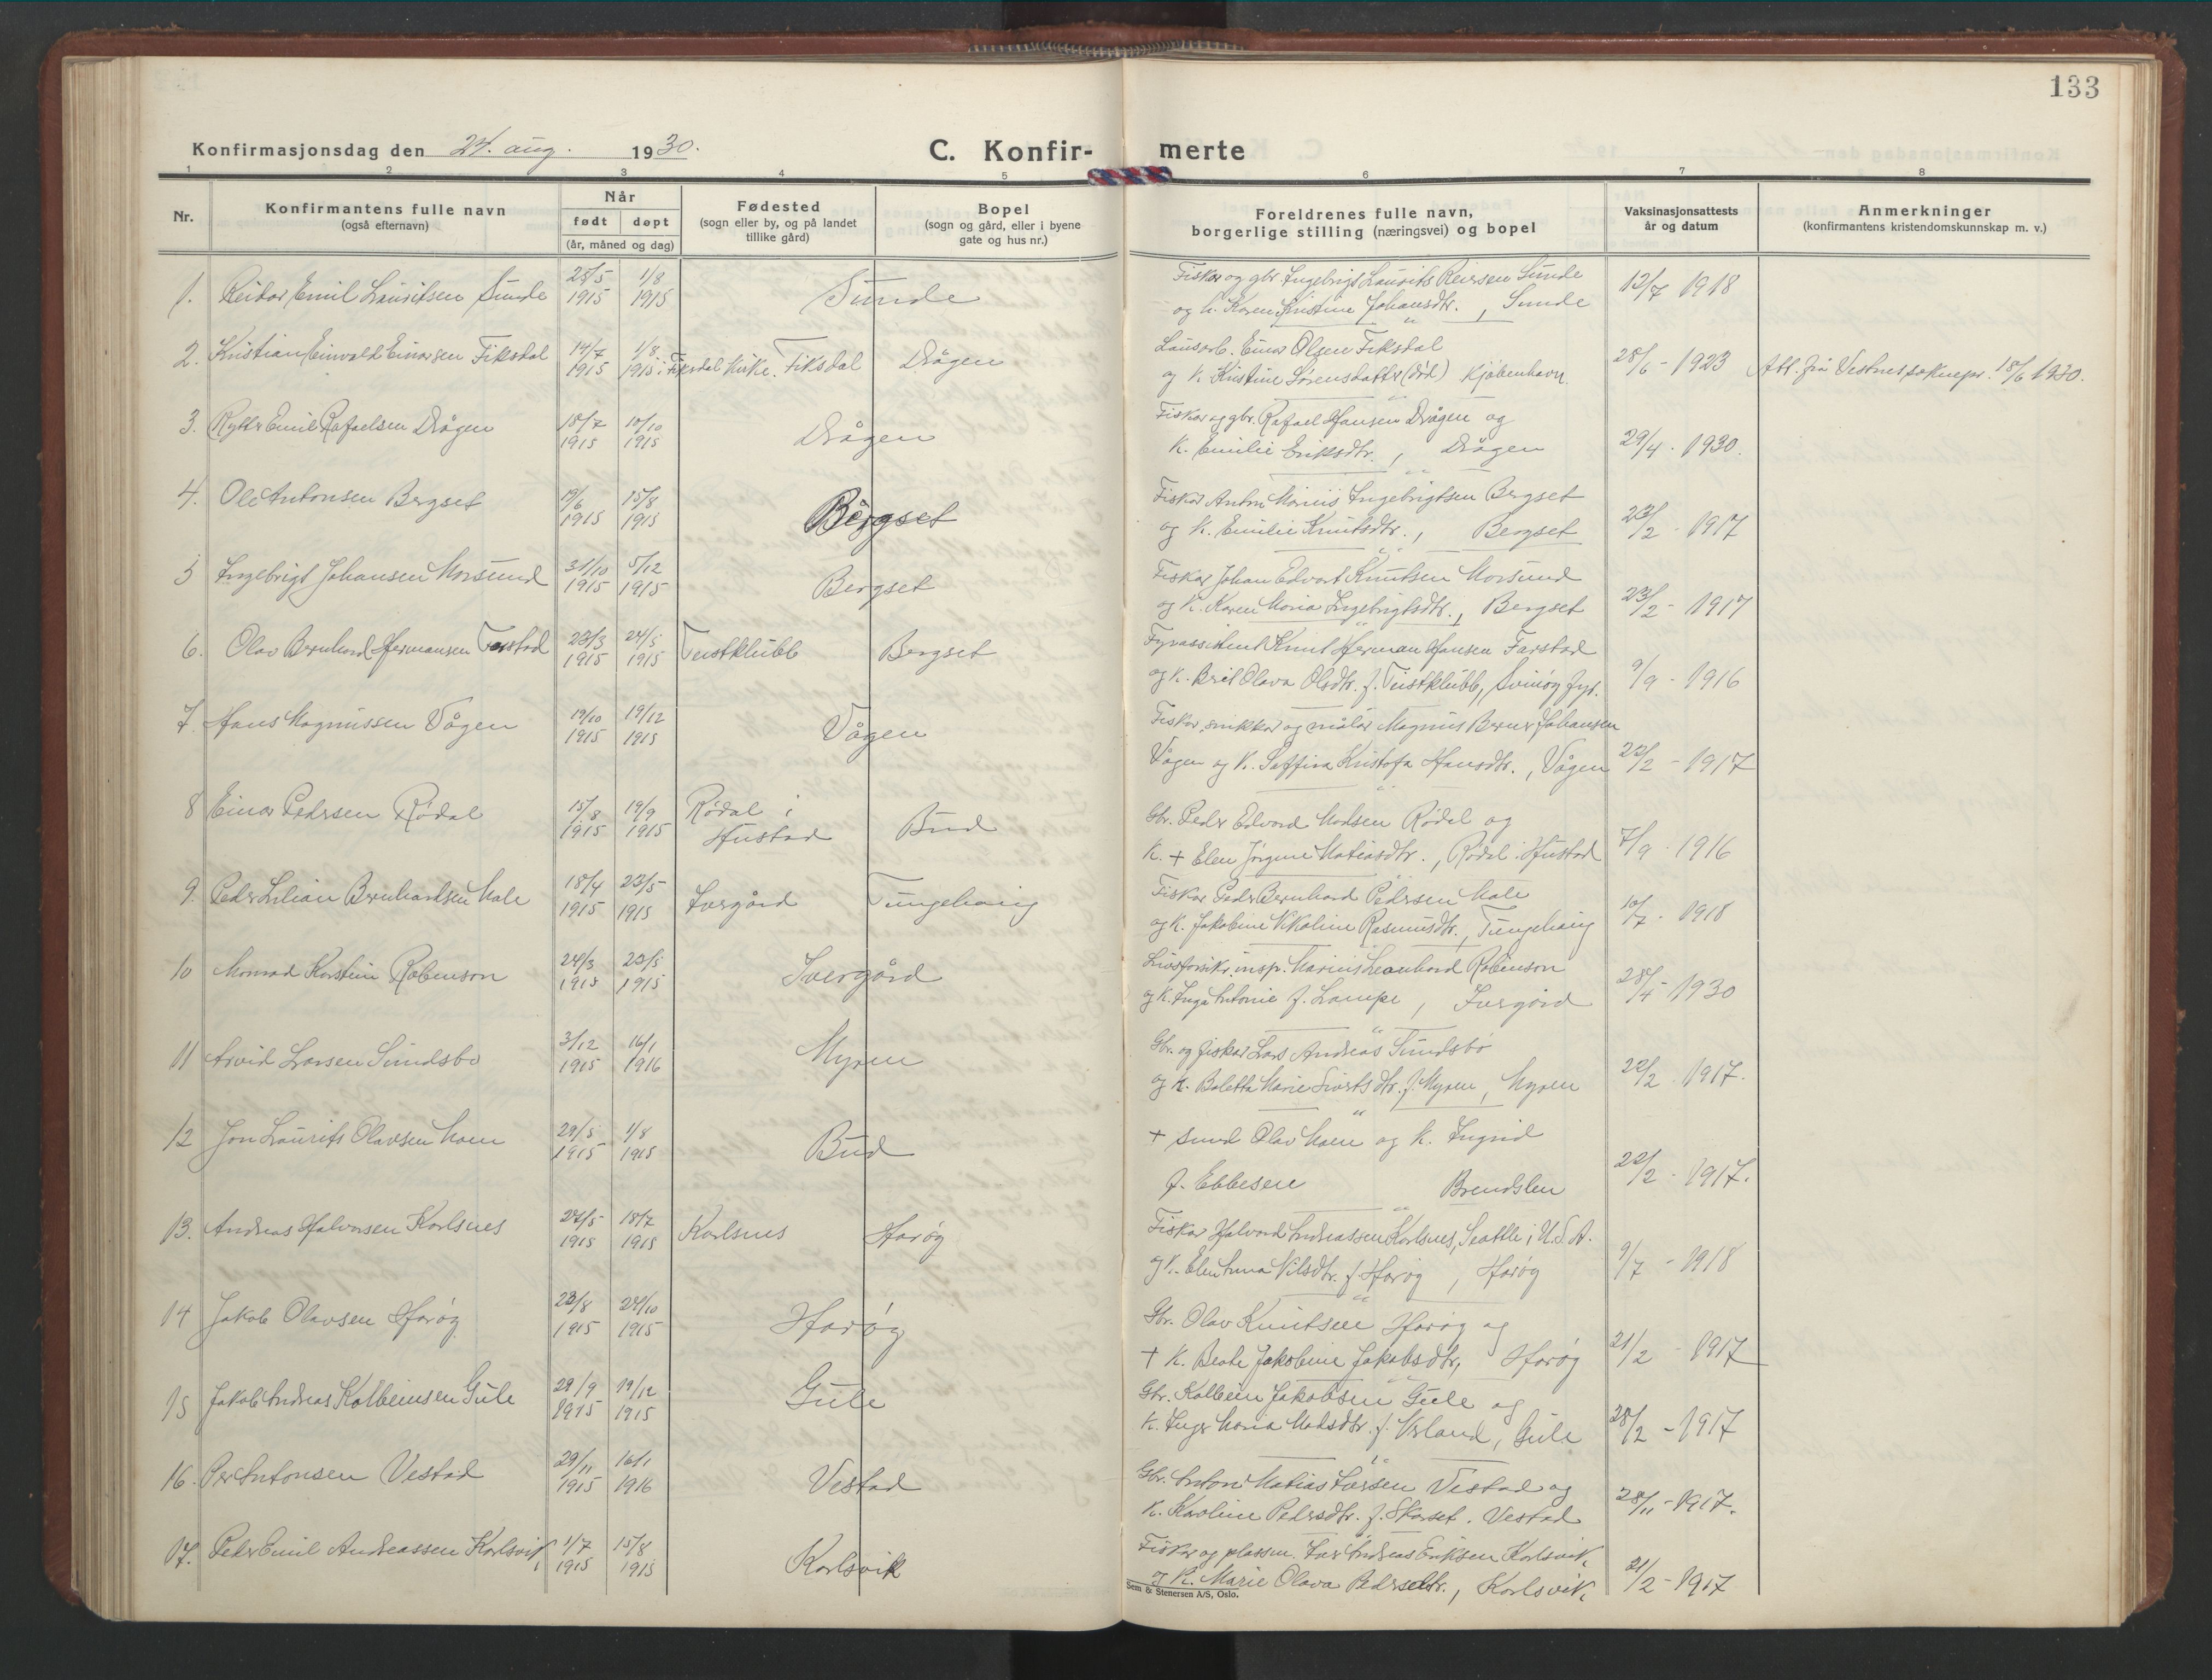 133
Konfirmasjonsdag den 24. aug. 1930.
C. Konfir- merte
1 2 3 4 5 6 7 8
Nr.
Konfirmantens fulle navn
(også efternavn)
Når
født døpt
(år, måned og dag)
Fødested
(sogn eller by, og på landet
tillike gård)
Bopel
(sogn og gård, eller i byene
gate og hus nr.)
Foreldrenes fulle navn,
borgerlige stilling (næringsvei) og bopel
Vaksinasjonsattests
år og datum
Anmerkninger
(konfirmantens kristendomskunnskap m. v.)
1. Reidar Emil Lauritsen Sunde 25/5 1915 1/8 1915 Sunde
Fiskar og gbr. Ingebrigt Laurits Reiersen Sunde
og k. Karen Kristine Johansdtr., Sunde 12/7 1918
2. Kristian Einvald Einarsen Fiksdal 14/7 1915 1/8 1915 i Fiksdal kirke. Fiksdal Drågen
Lausarb. Einar Olsen Fiksdal
og k. Kristine Sørensdatter (død) Kjøbenhavn. 28/6 - 1923 Att. frå Vestnes soknepr. 18/6 1930.
3. Rytter Emil Rafaelsen Drågen 18/7 1915 10/10 1915 Drågen
Fiskar og gbr. Rafael Hansen Drågen og
k. Emilie Eriksdtr., Drågen 29/4 - 1930.
4. Ole Antonsen Bergset 19/6 1915 15/8 1915 Bergset
Fiskar Anton Marius Ingebrigtsen Bergset
og k. Emilie Knutsdtr., Bergset 23/2 - 1917
5 Ingebrigt Johansen Morsund 31/10 1915 5/12 1915 Bergset
Fiskar Johan Edvart Knutsen Morsund
og k. Karen Maria Ingebrigtsdtr., Bergset 23/2 - 1917
6. Olav Bernhard Hermansen Farstad 23/3 1915 24/5 1915 Teistklubb Bergset
Fyrassistent Knut Herman Hansen Farstad
og k. Brit Olava Olsdtr. f. Teistklubb, Svinøy fyr. 9/9 - 1916
7. Hans Magnussen Vågen 19/10 1915 19/12 1915 Vågen
Fiskar, snikkar og målar Magnus Berner Johansen
Vågen og k. Saffira Kristofa Hansdtr., Vågen 22/2 - 1917
8 Einar Pedersen Rødal 15/8 1915 19/9 1915 Rødal i Hustad Bud
Gbr. Peder Edvard Madsen Rødal og
k. + Elen Jørgine Matiasdtr., Rødal i Hustad 7/9 - 1916
9. Peder Lilian Bernhardsen Male 18/4 1915 23/5 1915 Ivergård Tungehaug
Fiskar Peder Bernhard Pedersen Male
og k. Jakobine Nikoline Rasmusdtr., Tungehaug 10/7 - 1918
10 Monrad Karstein Robenson 24/3 1915 23/5 1915 Ivergård
Livsforsikr. insp. Marius Leonhard Robinson
og k. Inga Antonie f. Lampe, Ivergård 28/4 - 1930
11 Arvid Larsen Sundsbø 3/12 1915 16/1 1916 Myren
Gbr. og fiskar Lars Andreas Sundsbø
og k. Boletta Marie Sivertsdtr. f. Myren, Myren 22/2 - 1917.
12 Jon Laurits Olavsen Moen 29/5 1915 1/8 1915 Bud
+ Smed Olav Moen og k. Ingrid
f. Ebbesen Brendslen 22/2 - 1917.
13. Andreas Halvorsen Karlsnes 24/5 1915 18/7 1915 Karlsnes Harøy
Fiskar Halvard Andreassen Karlsnes, Seattle i U.S.A.
og k. Elen Anna Nilsdtr. f. Harøy, Harøy 9/7 - 1918
14 Jakob Olavsen Harøy 23/8 1915 24/10 1915 Harøy
Gbr. Olav Knutsen Harøy og
+ k. Beate Jakobine Jakobsdtr, Harøy 21/2 - 1917
15 Jakob Andreas Kolbeinsen Gule 29/9 1915 19/12 1915 Gule
Gbr. Kolbein Jakobsen Gule og
k. Inger Maria Madsdtr. f. Urland, Gule 28/2 - 1917
16. Per Antonsen Vestad 29/11 1915 16/1 1916 Vestad
Gbr. Anton Matias Iversen Vestad og
k. Karoline Pedersdtr. f. Skarset. Vestad 28/11 - 1917.
17. Peder Emil Andreassen Karlsvik 1/7 1915 15/8 1915 Karlsvik
Fiskar og plassm. Iver Andreas Eriksen Karlsvik,
og k. Marie Olava Pedersdtr., Karlsvik. 21/2 - 1917
Sem & Stenersen A/S, Oslo.